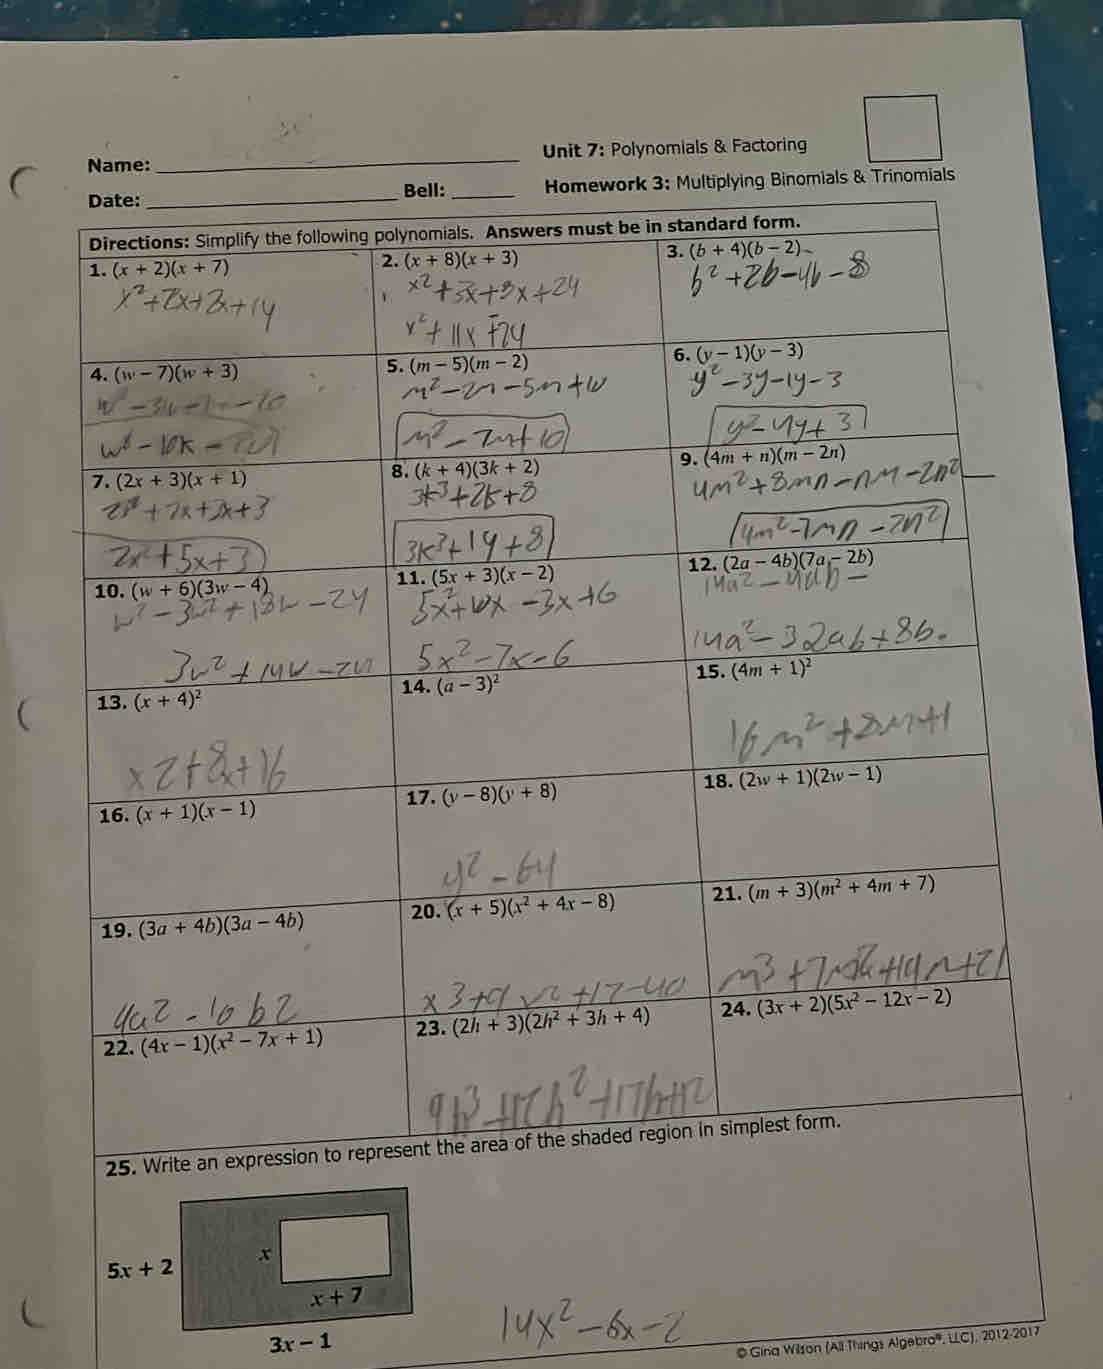 Name:
Unit 7: Polynomials & Factoring
Date:
Bell:
Homework 3: Multiplying Binomials & Trinomials
Directions: Simplify the following polynomials. Answers must be in standard form.
1. (x + 2)(x + 7)
x² + 7x + 2x + 14
2. (x + 8)(x + 3)
x² + 3x + 8x + 24
x² + 11x + 24
3. (b + 4)(b − 2)
b² + 2b − 4b − 8
4. (w − 7)(w + 3)
5. (m − 5)(m − 2)
m² − 2m − 5m + 10
m² − 7m + 10
6. (y − 1)(y − 3)
y² − 3y − 1y − 3
y² − 4y + 3
7. (2x + 3)(x + 1)
2x² + 2x + 3x + 3
2x² + 5x + 3
8. (k + 4)(3k + 2)
3k³ + 2k + 8
3k³ + 14 + 8
9. (4m + n)(m − 2n)
4m² + 8mn − nm − 2n²
4m² − 7mn − 2n²
10. (w + 6)(3w − 4)
w² − 3w² + 18w − 24
3w² + 14w − 24
11. (5x + 3)(x − 2)
5x² + 10x − 3x + 6
5x² − 7x − 6
12. (2a − 4b)(7a − 2b)
14a² − 4ab −
14a² − 32ab + 8b.
13. (x + 4)²
x2 + 8x + 16
14. (a − 3)²
15. (4m + 1)²
16m² + 8m + 1
16. (x + 1)(x − 1)
17. (y − 8)(y + 8)
y² − 64
18. (2w + 1)(2w − 1)
19. (3a + 4b)(3a − 4b)
9a2 − 16b2
20. (x + 5)(x² + 4x − 8)
x3 + 9x2 + 12 − 40
21. (m + 3)(m² + 4m + 7)
m³ + 7m² + 19m + 21
22. (4x − 1)(x² − 7x + 1)
23. (2h + 3)(2h² + 3h + 4)
24. (3x + 2)(5x² − 12x − 2)
25. Write an expression to represent the area of the shaded region in simplest form.
5x + 2
x
x + 7
3x − 1
14x² − 6x − 2
© Gina Wilson (All Things Algebra®, LLC), 2012-2017